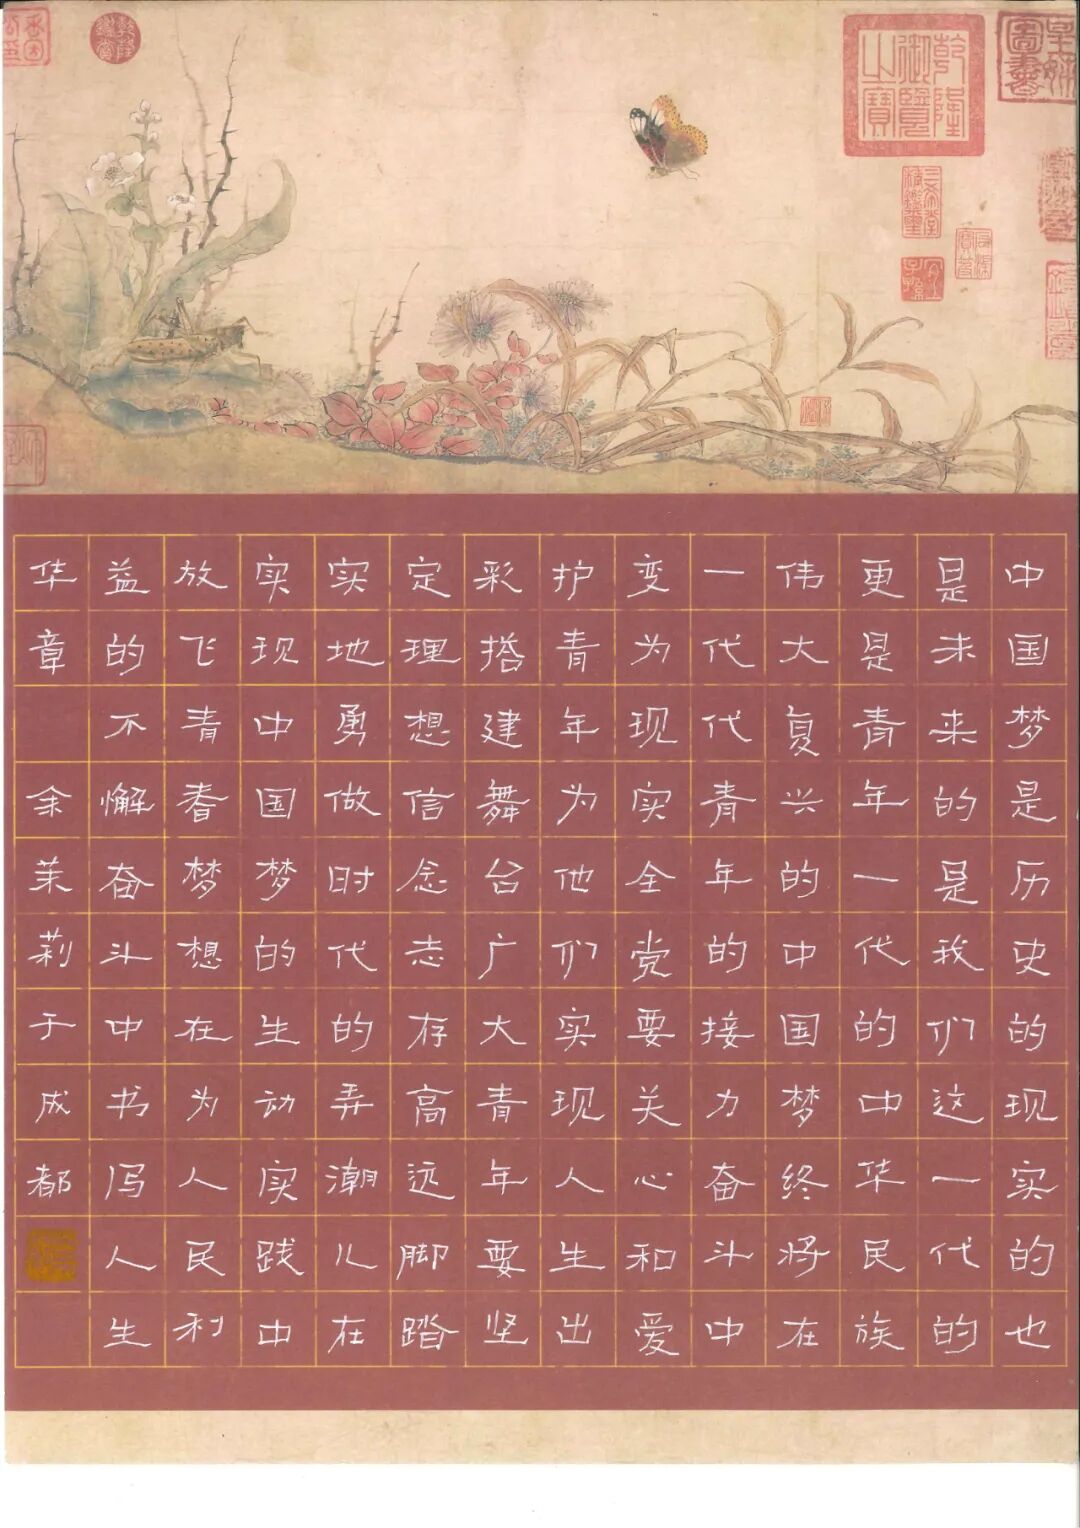 乾隆御覽之寶
三希堂精鑑璽
宜子孫
乾隆鑑賞
中国梦是历史的现实的也
是未来的是我们这一代的
更是青年一代的中华民族
伟大复兴的中国梦终将在
一代代青年的接力奋斗中
变为现实全党要关心和爱
护青年为他们实现人生出
彩搭建舞台广大青年要坚
定理想信念志存高远脚踏
实地勇做时代的弄潮儿在
实现中国梦的生动实践中
放飞青春梦想在为人民利
益的不懈奋斗中书写人生
华章 余茉莉于成都